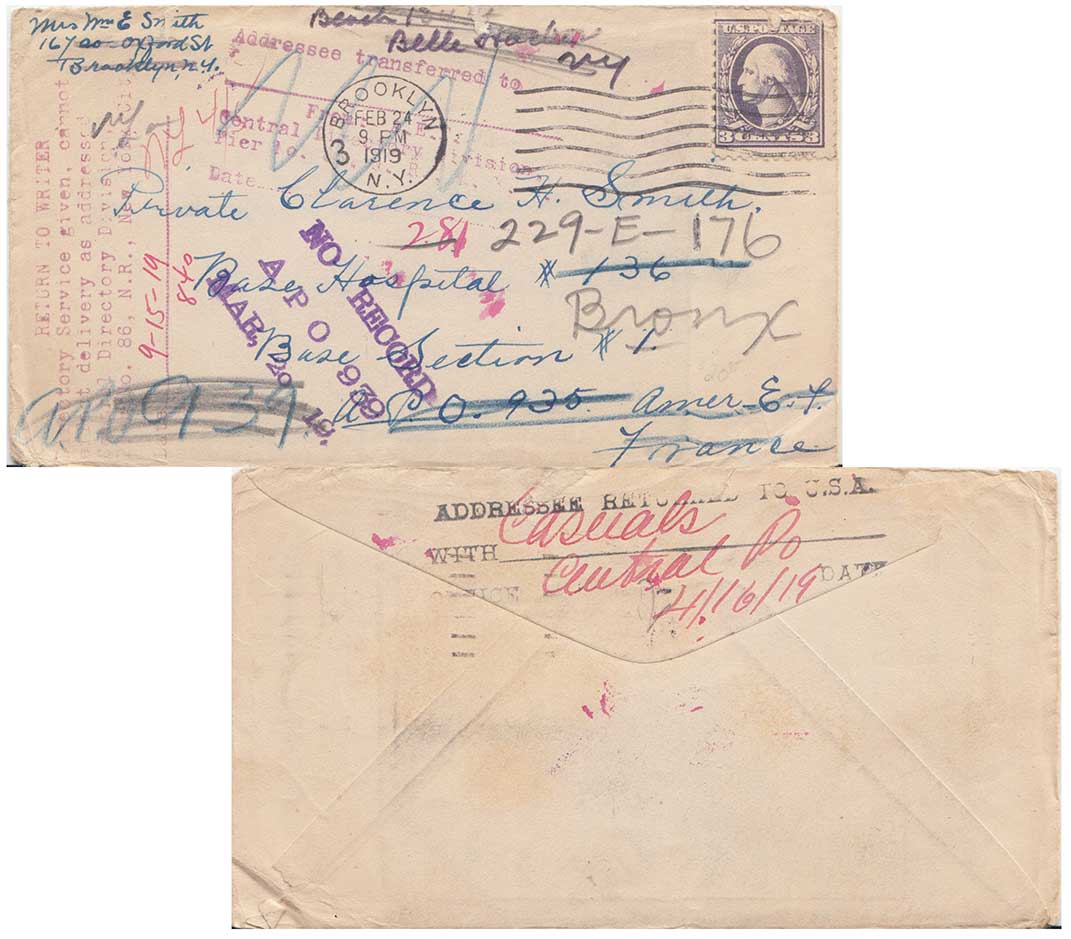 Mrs Wm E Smith
167 So. Oxford St
Brooklyn, N.Y.
Beach
Belle Harbor
NY
Addressee transferred to
From
Central Directory Division
Pier
Date
U.S. POSTAGE
3 CENTS 3
BROOKLYN,
FEB 24
9 PM
1919
N.Y.
3
Private Clarence H. Smith,
281
229-E-176
Base Hospital # 136
Bronx
Base Section # 1.
A.P.O. 935. Amer. E. F.
France
APO 939.
NO RECORD
A P O 939
MAR, 29 19.
RETURN TO WRITER
Directory Service given, cannot
delivery as addressed
Directory Division
No. 86, N.R., New York City
9-15-19
840
ADDRESSEE RETURNED TO U.S.A.
WITH Casuals
Central Po
OFFICE DATE
4/16/19